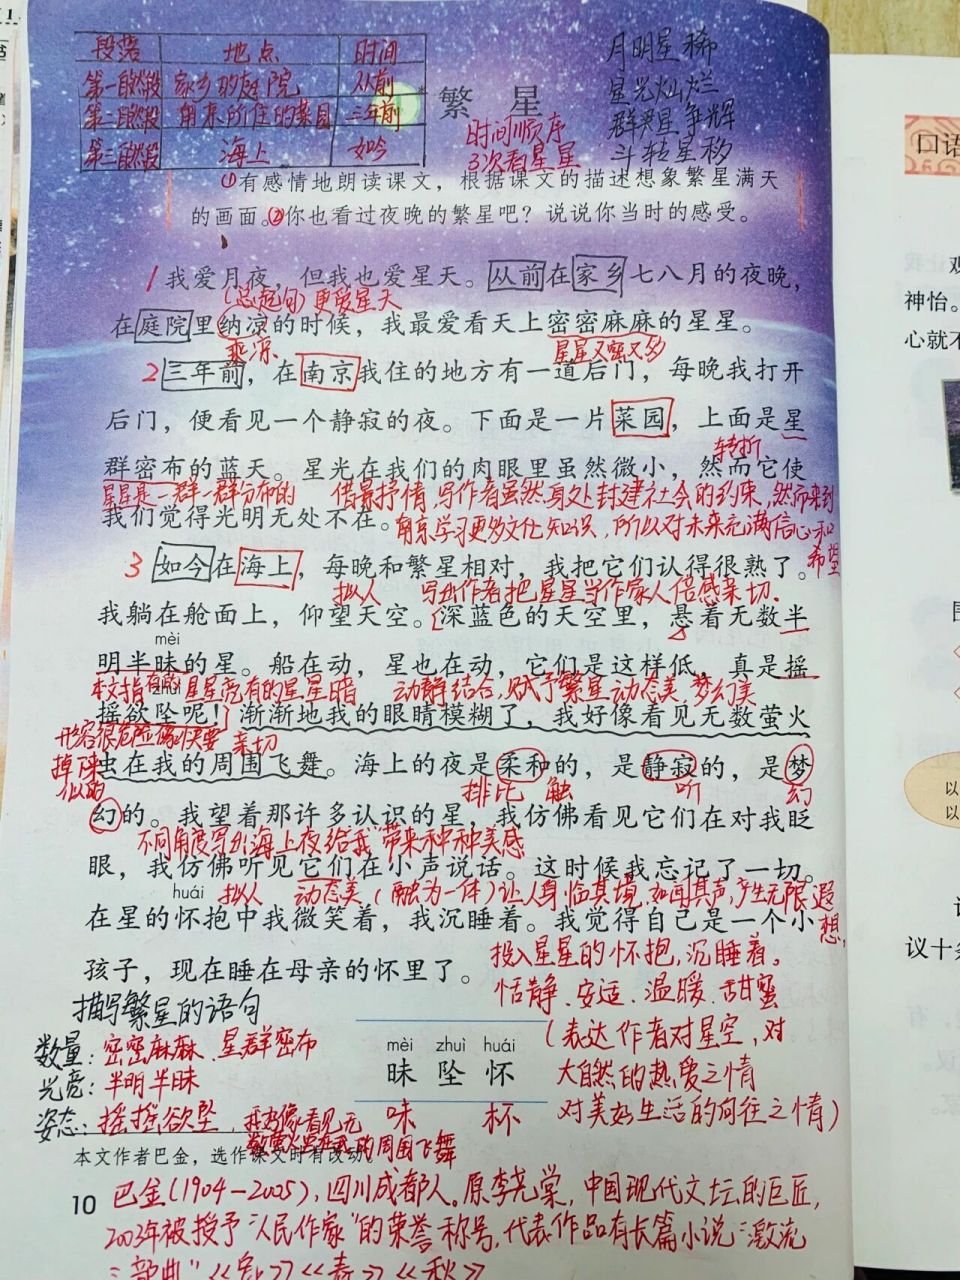 段落 地点 时间
第一自然段 家乡的庭院 从前
第二自然段 南京的住的菜园 三年前
第三自然段 海上 如今
月明星稀
星光灿烂
群星争辉
斗转星移
*繁 星
时间顺序
3次看星星
①有感情地朗读课文，根据课文的描述想象繁星满天
的画面。②你也看过夜晚的繁星吧？说说你当时的感受。
1 我爱月夜，但我也爱星天。从前在家乡七八月的夜晚，
(总起句) 更爱星天
在庭院里纳凉的时候，我最爱看天上密密麻麻的星星。
乘凉 星星又密又多
2 三年前，在南京我住的地方有一道后门，每晚我打开
后门，便看见一个静寂的夜。下面是一片菜园，上面是星
转折
群密布的蓝天。星光在我们的肉眼里虽然微小，然而它使
星星是一群一群分布的 借景抒情，写作者虽然身处封建社会的约束，然而来到
我们觉得光明无处不在。
南京学习更多文化知识，所以对未来充满信心和
希望
3 如今在海上，每晚和繁星相对，我把它们认得很熟了。
拟人 写出作者把星星当作家人倍感亲切.
我躺在舱面上，仰望天空。深蓝色的天空里，悬着无数半
mèi
明半昧的星。船在动，星也在动，它们是这样低，真是摇
本文指有的星星亮有的星星暗 动静结合，赋予繁星动态美，梦幻美
zhuì
摇欲坠呢！渐渐地我的眼睛模糊了，我好像看见无数萤火
形容很危险像快要
掉下来
似的
亲切
虫在我的周围飞舞。海上的夜是柔和的，是静寂的，是梦
排比 触 听 幻
幻的。我望着那许多认识的星，我仿佛看见它们在对我眨
不同角度写出海上夜给"我"带来种种美感
眼，我仿佛听见它们在小声说话。这时候我忘记了一切。
huái
拟人 动态美(融为一体)让人身临其境，如闻其声，产生无限遐
想，
在星的怀抱中我微笑着，我沉睡着。我觉得自己是一个小
孩子，现在睡在母亲的怀里了。
投入星星的怀抱，沉睡着。
恬静、安适、温暖、甜蜜
(表达作者对星空，对
大自然的热爱之情
对美好生活的向往之情)
描写繁星的语句
数量：密密麻麻、星群密布
光亮：半明半昧
姿态：摇摇欲坠，我好像看见无
数萤火虫在我的周围飞舞
mèi zhuì huái
昧 坠 怀
味 杯
本文作者巴金，选作课文时有改动。
10
巴金(1904-2005)，四川成都人。原李尧棠，中国现代文坛的巨匠，
2003年被授予"人民作家"的荣誉称号，代表作品有长篇小说"激流
三部曲"《家》《春》《秋》
口语
观
神怡。
心就不
以
以
议十条